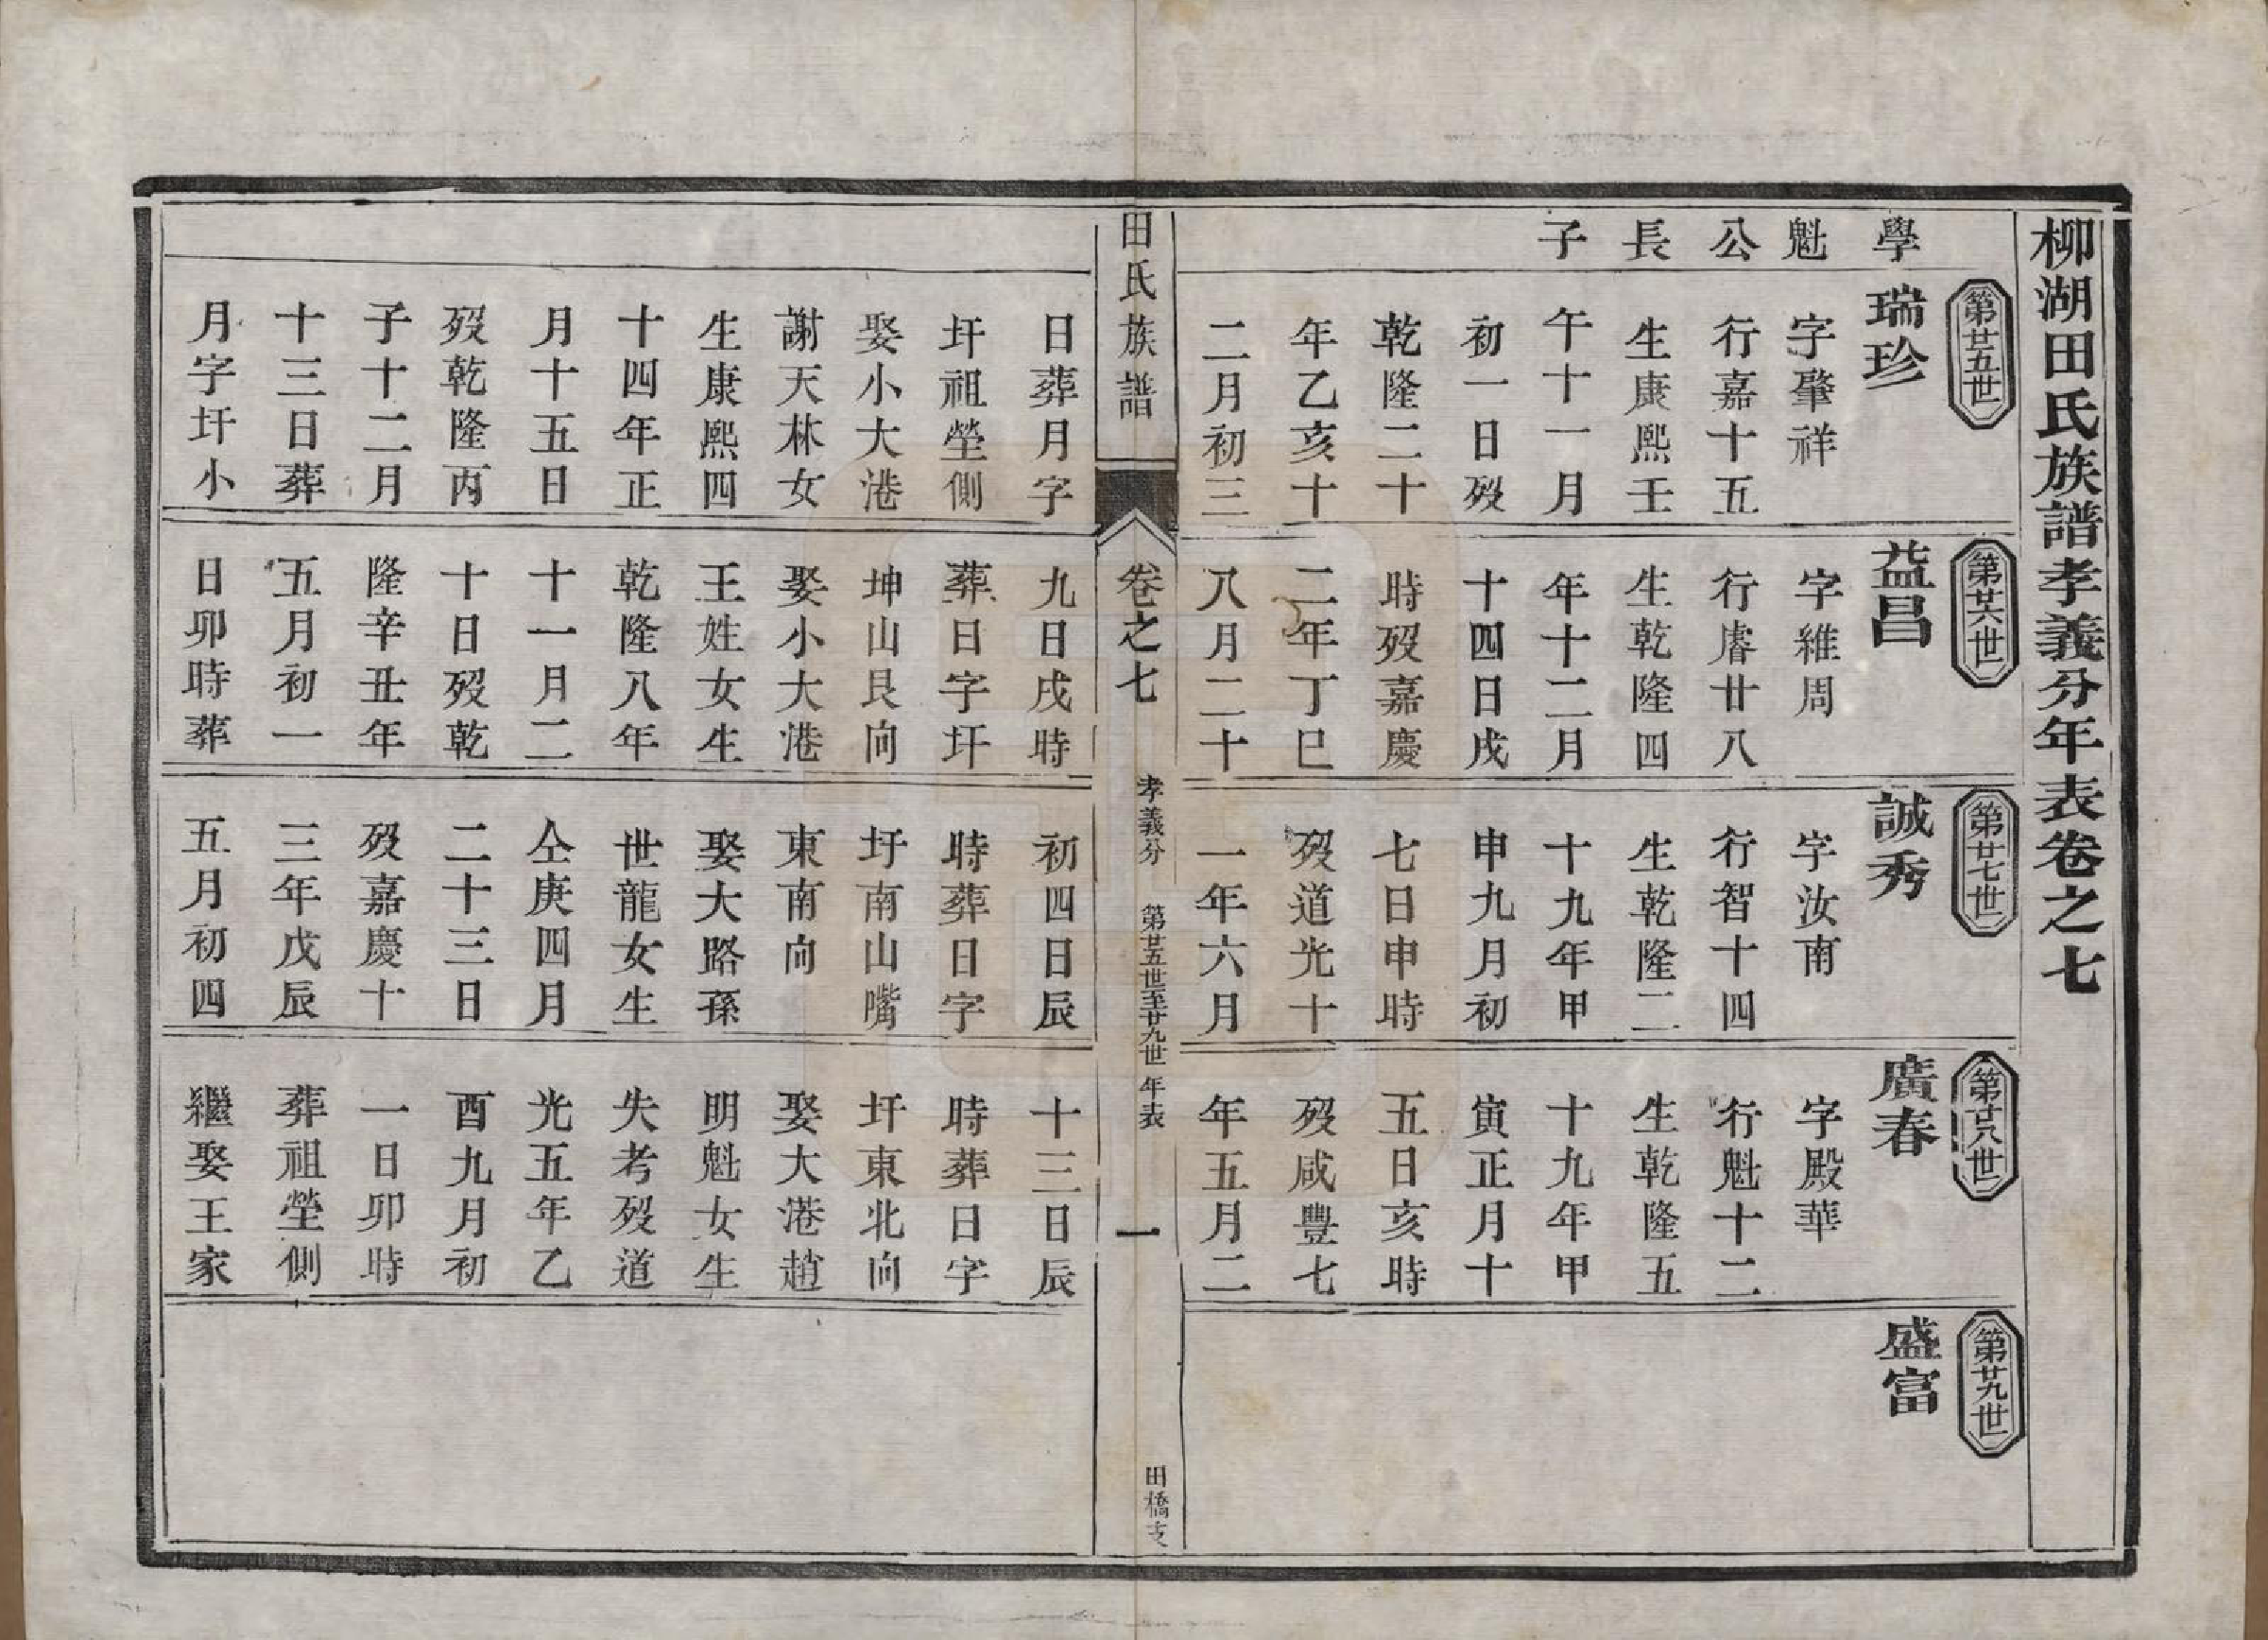 柳湖田氏族譜孝義分年表卷之七
學魁公長子
第廿五世
瑞珍
字肇祥
行嘉十五
生康熙壬
午十一月
初一日歿
乾隆二十
年乙亥十
二月初三
日葬月字
圩祖塋側
娶小大港
謝天林女
生康熙四
十四年正
月十五日
歿乾隆丙
子十二月
十三日葬
月字圩小
第廿六世
益昌
字維周
行睿廿八
生乾隆四
年十二月
十四日戌
時歿嘉慶
二年丁巳
八月二十
九日戌時
葬日字圩
坤山艮向
娶小大港
王姓女生
乾隆八年
十一月二
十日歿乾
隆辛丑年
五月初一
日卯時葬
第廿七世
誠秀
字汝南
行智十四
生乾隆二
十九年甲
申九月初
七日申時
歿道光十
一年六月
初四日辰
時葬日字
圩南山嘴
東南向
娶大路孫
世龍女生
仝庚四月
二十三日
歿嘉慶十
三年戊辰
五月初四
第廿八世
廣春
字殿華
行魁十二
生乾隆五
十九年甲
寅正月十
五日亥時
歿咸豐七
年五月二
十三日辰
時葬日字
圩東北向
娶大港趙
明魁女生
失考歿道
光五年乙
酉九月初
一日卯時
葬祖塋側
繼娶王家
第廿九世
盛富
田氏族譜
卷之七
孝義分 第廿五世至廿九世 年表
一
田橋支